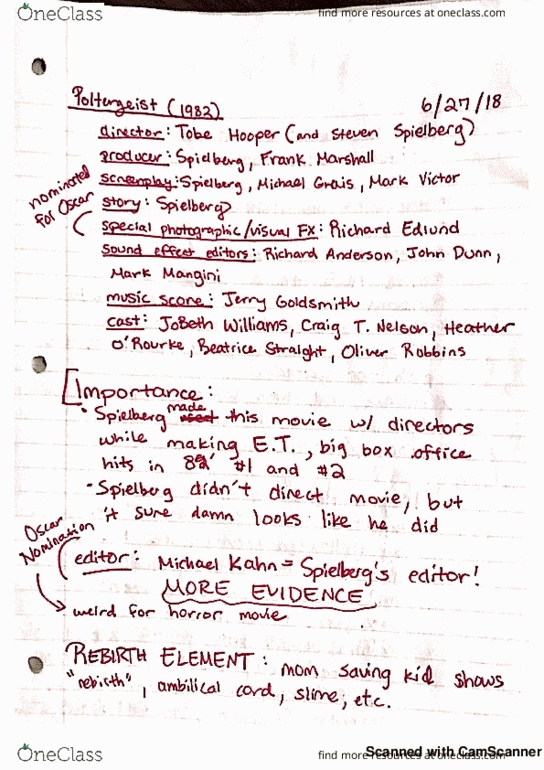 OneClass
find more resources at oneclass.com
Poltergeist (1982)
6/27/18
director: Tobe Hooper (and Steven Spielberg)
producer: Spielberg, Frank Marshall
screenplay: Spielberg, Michael Grais, Mark Victor
nominated for Oscar
story: Spielberg
special photographic/visual FX: Richard Edlund
sound effect editors: Richard Anderson, John Dunn,
Mark Mangini
music score: Jerry Goldsmith
cast: JoBeth Williams, Craig T. Nelson, Heather
O'Rourke, Beatrice Straight, Oliver Robbins
Importance:
• Spielberg made this movie w/ directors
while making E.T., big box office
hits in 82' #1 and #2
• Spielberg didn't direct movie, but
it sure damn looks like he did
Oscar Nomination
editor: Michael Kahn = Spielberg's editor!
MORE EVIDENCE
→ weird for horror movie
REBIRTH ELEMENT: mom saving kid shows
"rebirth", ambilical cord, slime, etc.
OneClass
find more resources at oneclass.com
Scanned with CamScanner